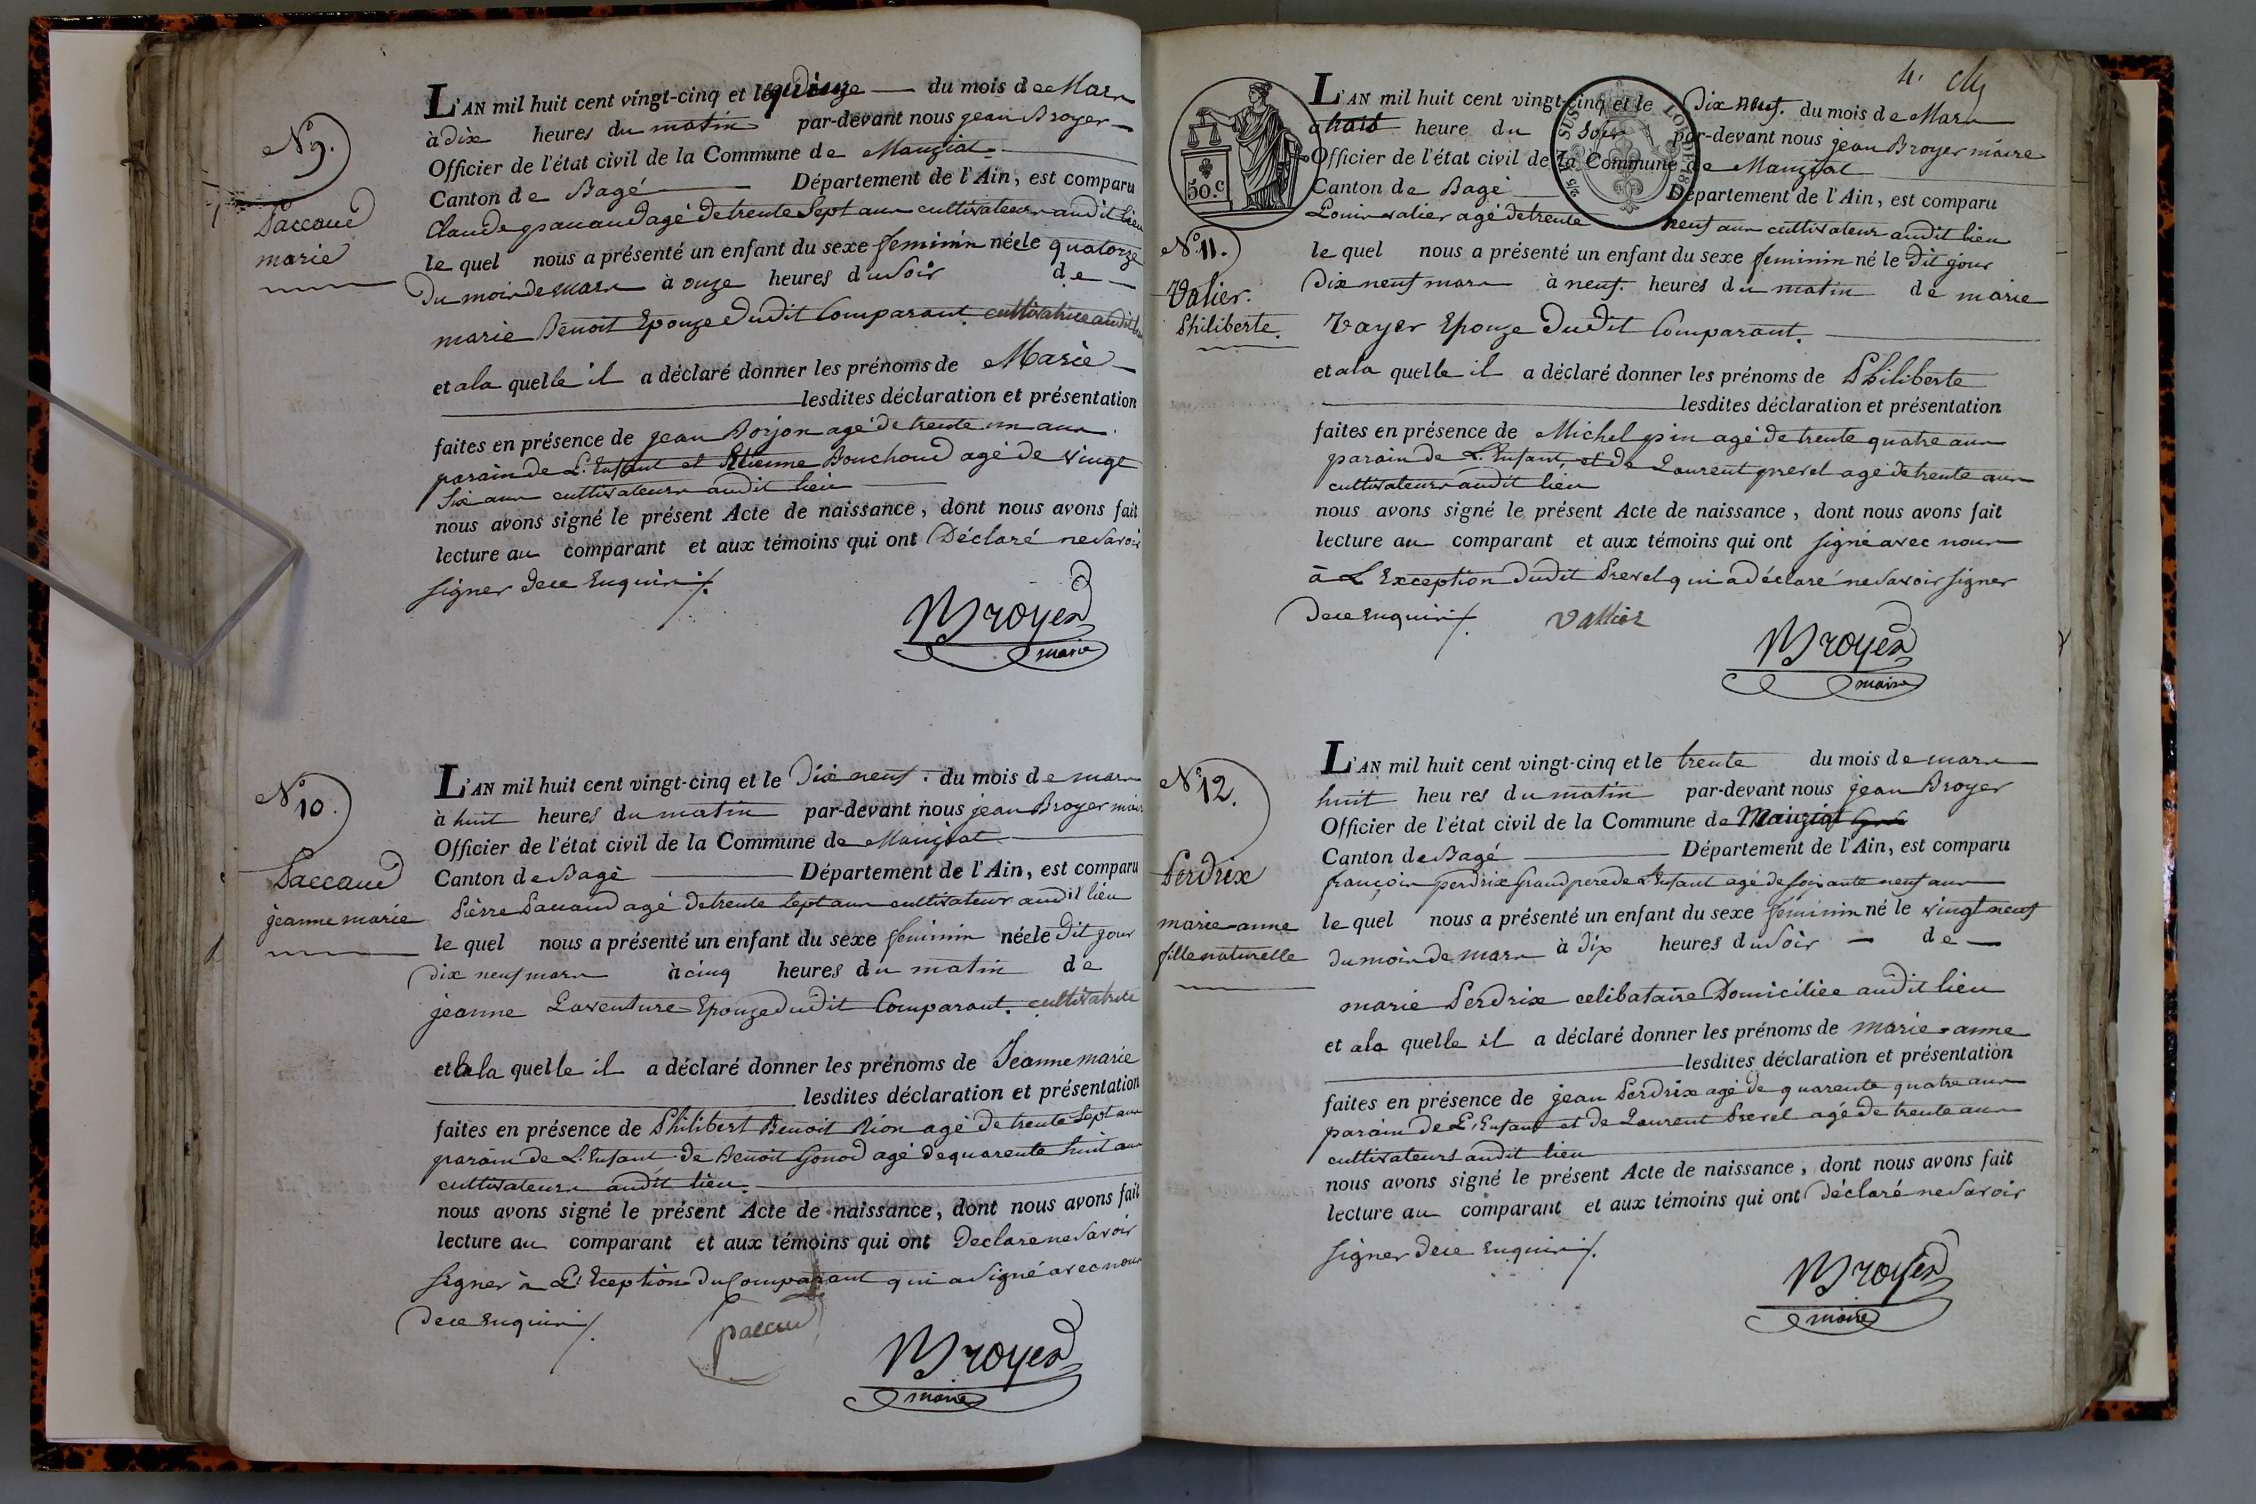 N.° 9.
Paccaud
marie
L'AN mil huit cent vingt-cinq et le quinze du mois de Mars
à dix heures du matin par-devant nous jean Broyer
Officier de l'état civil de la Commune de Manziat
Canton de Bagé Département de l'Ain, est comparu
Claude paccaud agé de trente Sept ans cultivateur audit lieu
le quel nous a présenté un enfant du sexe feminin née le quatorze
du mois de mars à onze heures du Soir de
marie Benoit Epouze dudit Comparant cultivatrice audit lieu
et a la quelle il a déclaré donner les prénoms de Marie
lesdites déclaration et présentation
faites en présence de jean Borjon agé de trente un ans
parain de L'Enfant et Etienne Bouchoud agé de vingt
Six ans cultivateurs audit lieu
nous avons signé le présent Acte de naissance, dont nous avons fait
lecture au comparant et aux témoins qui ont Déclaré ne Savoir
signer de ce Enquis ./.
Broyer
maire
N.° 10.
Paccaud
jeanne marie
L'AN mil huit cent vingt-cinq et le Dix neuf. du mois de mars
à huit heures du matin par-devant nous jean Broyer maire
Officier de l'état civil de la Commune de Manziat
Canton de Bagé Département de l'Ain, est comparu
Pierre Paccaud agé de trente Sept ans cultivateur audit lieu
le quel nous a présenté un enfant du sexe feminin née le Dit jour
Dix neuf mars à cinq heures du matin de
jeanne Laventure Epouze dudit Comparant. cultivatrice
et a la quelle il a déclaré donner les prénoms de Jeanne marie
lesdites déclaration et présentation
faites en présence de Philibert Benoit Rion agé de trente Sept ans
parain de L'Enfant de Benoit Gonod agé de quarente huit ans
cultivateurs audit lieu.
nous avons signé le présent Acte de naissance, dont nous avons fait
lecture au comparant et aux témoins qui ont Declare ne Savoir
signer à L'Eception du Comparant qui a Signé avec nous
de ce Enquis ./.
paccaud
Broyer
maire
4.
50.c
LOI DE 18
N.° 11.
Valier.
Philiberte.
L'AN mil huit cent vingt-cinq et le Dix Neuf. du mois de Mars
a trois heure du Soir par-devant nous jean Broyer maire
Officier de l'état civil de la Commune de Manziat
Canton de Bagé Département de l'Ain, est comparu
Louis valier agé de trente neuf ans cultivateur audit lieu
le quel nous a présenté un enfant du sexe feminin né le Dit jour
Dix neuf mars à neuf. heures du matin de marie
Voyer Epouze Dudit Comparant.
et a la quelle il a déclaré donner les prénoms de Philiberte
lesdites déclaration et présentation
faites en présence de Michel pin agé de trente quatre ans
parain de L'Enfant et de Laurent prevel agé de trente ans
cultivateurs audit lieu
nous avons signé le présent Acte de naissance, dont nous avons fait
lecture au comparant et aux témoins qui ont signé avec nous
à L'Exception dudit Prevel qui a déclaré ne Savoir signer
De ce Enquis ./.
Vallier
Broyer
maire
N.° 12.
Perdrix
marie-anne
fille naturelle
L'AN mil huit cent vingt-cinq et le trente du mois de mars
huit heures du matin par-devant nous jean Broyer
Officier de l'état civil de la Commune de Manziat
Canton de Bagé Département de l'Ain, est comparu
françois perdrix Grand pere de L'Enfant agé de soixante neuf ans
le quel nous a présenté un enfant du sexe féminin né le vingt neuf
du mois de mars à dix heures du Soir de
marie Perdrix celibataire Domiciliée audit lieu
et a la quelle il a déclaré donner les prénoms de marie-anne
lesdites déclaration et présentation
faites en présence de jean Perdrix agé de quarente quatre ans
parain de L'Enfant et de Laurent Prevel agé de trente ans
cultivateurs audit lieu
nous avons signé le présent Acte de naissance, dont nous avons fait
lecture au comparant et aux témoins qui ont déclaré ne Savoir
signer de ce Enquis ./.
Broyer
maire